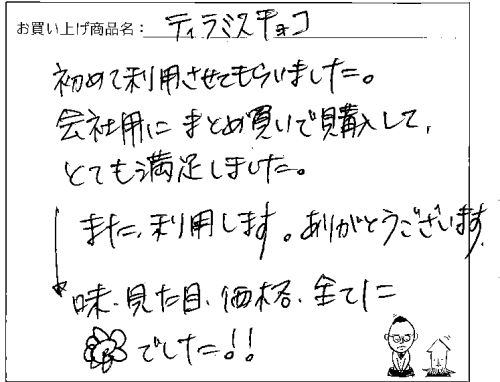 お買い上げ商品名： ティラミスチョコ
初めて利用させてもらいました。
会社用に まとめ買いで購入して、
とても満足しました。
また、利用します。ありがとうございます。
味・見た目・価格・全てに
でした!!